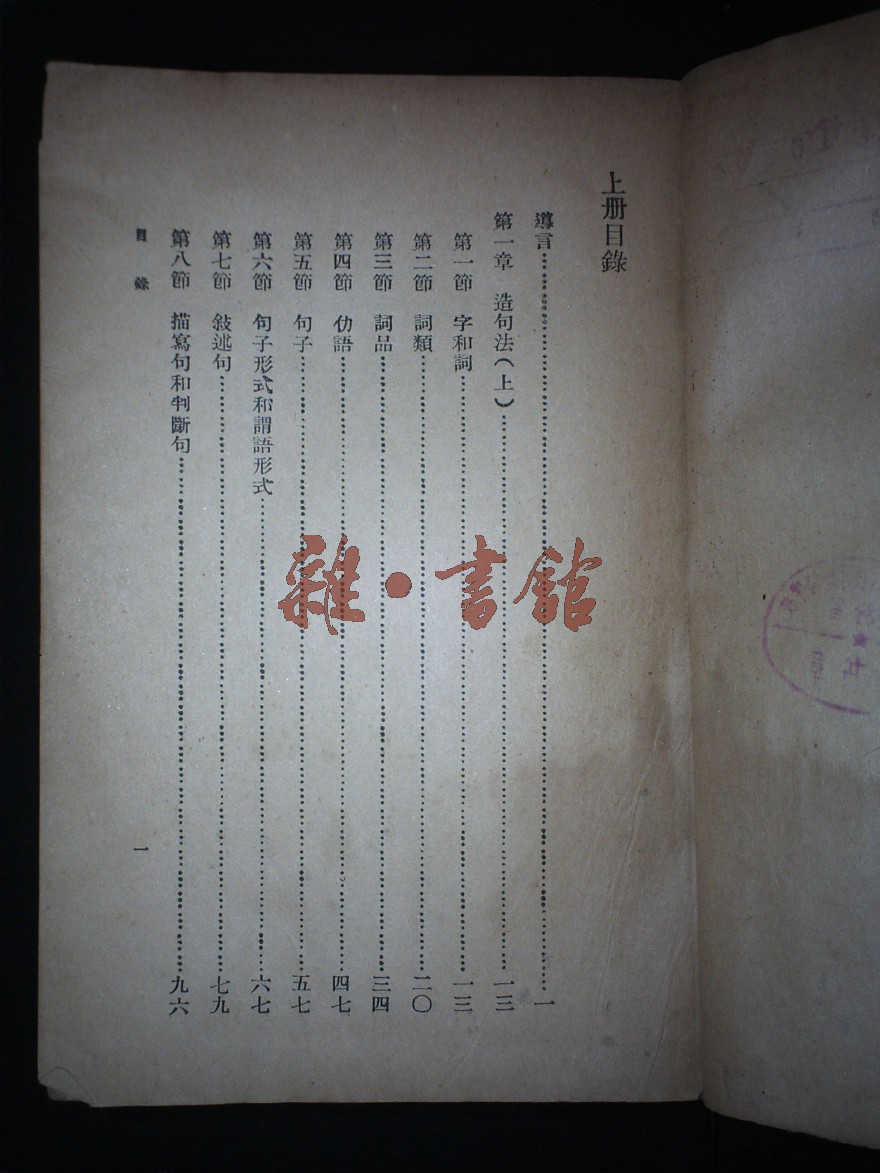 上册目錄
導言……一
第一章 造句法(上)……一三
第一節 字和詞……一三
第二節 詞類……二〇
第三節 詞品……三四
第四節 仂語……四七
第五節 句子……五七
第六節 句子形式和謂語形式……六七
第七節 敍述句……七九
第八節 描寫句和判斷句……九六
目錄 一
雜·書館